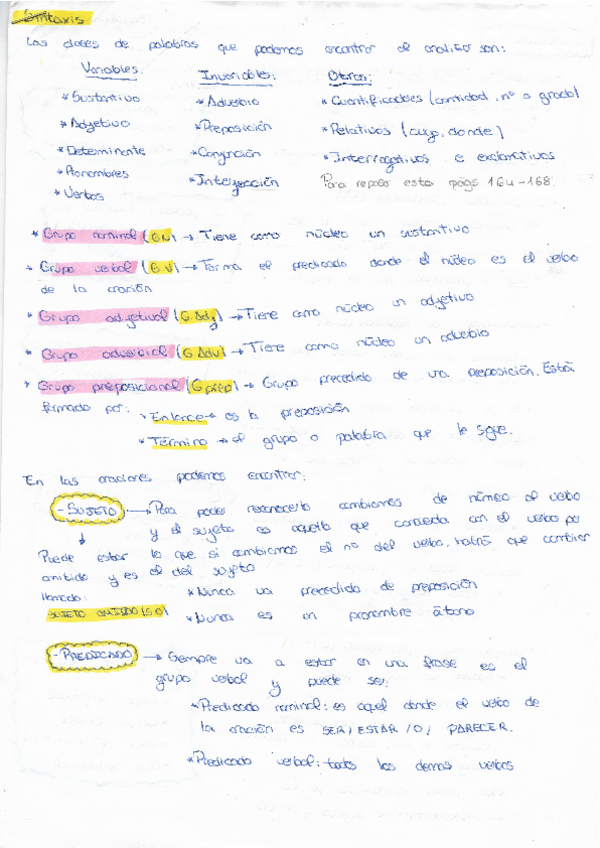 Sintaxis
Las clases de palabras que podemos encontrar al analizar son:
Variables: Invariables: Otros:
* Sustantivo * Adverbio * Cuantificadores (cantidad, nº o grado)
* Adjetivo * Preposición * Relativos (cuyo, donde)
* Determinante * Conjunción * Interrogativos e exclamativos
* Pronombres * Interjección Para repaso esta págs 164-168.
* Verbos
* Grupo nominal (GN) → Tiene como núcleo un sustantivo
* Grupo verbal (G.V) → Forma el predicado donde el núcleo es el verbo
de la oración
* Grupo adjetival (G.Adj) → Tiene como núcleo un adjetivo
* Grupo adverbial (G.Adv) → Tiene como núcleo un adverbio
* Grupo preposicional (Gprep) → Grupo precedido de una preposición. Está
formado por: * Enlace → es la preposición
* Término → el grupo o palabra que le sigue.
En las oraciones podemos encontrar:
- SUJETO → Para poder reconocerlo cambiamos de número al verbo
y el sujeto es aquello que concuerda con el verbo por
Puede estar lo que si cambiamos el nº del verbo, habrá que cambiar
omitido y es el del sujeto
llamado: * Nunca va precedido de preposición
SUJETO OMITIDO (S.O) * Nunca es un pronombre átono
- PREDICADO → Siempre va a estar en una frase es el
grupo verbal y puede ser:
* Predicado nominal: es aquel donde el verbo de
la oración es SER, ESTAR /O/ PARECER.
* Predicado verbal: todos los demas verbos